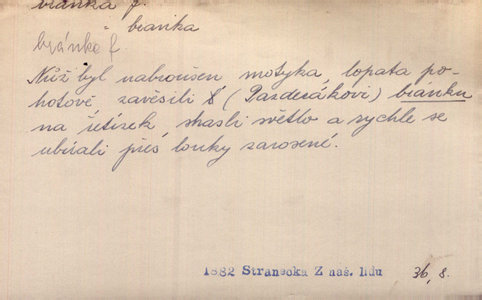 branka f.
" branka
bránka f.
Nůž byl nabroušen motyka, lopata po-
hotově, zavěsili (Pazderákovi) bránku
na řetízek, shasli světlo a rychle se
ubírali přes louky zarosené.
1882 Stranecka Z naš. lidu 36, 8.